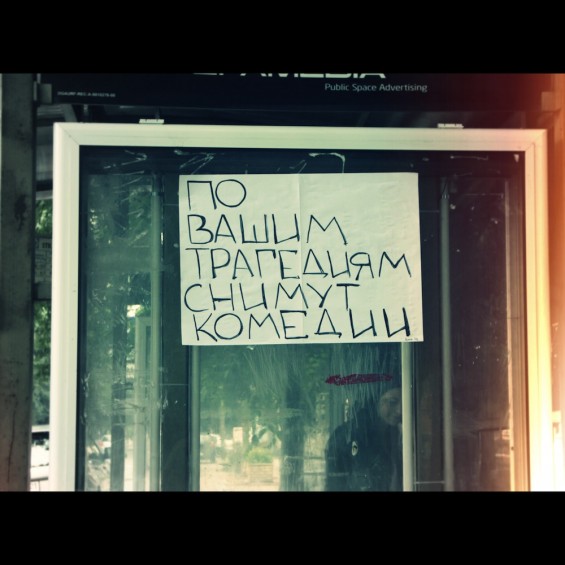 Public Space Advertising
ПО
ВАШИМ
ТРАГЕДИЯМ
СНИМУТ
КОМЕДИИ